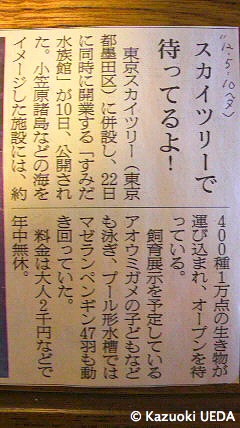 '12.5.10
スカイツリーで
待ってるよ!
東京スカイツリー(東京
都墨田区)に併設し、22日
に同時に開業する「すみだ
水族館」が10日、公開され
た。小笠原諸島などの海を
イメージした施設には、約
400種1万点の生き物が
運び込まれ、オープンを待
っている。
飼育展示を予定している
アオウミガメの子どもなど
も泳ぎ、プール形水槽では
マゼランペンギン47羽も動
き回っていた。
料金は大人2千円などで
年中無休。
© Kazuoki UEDA